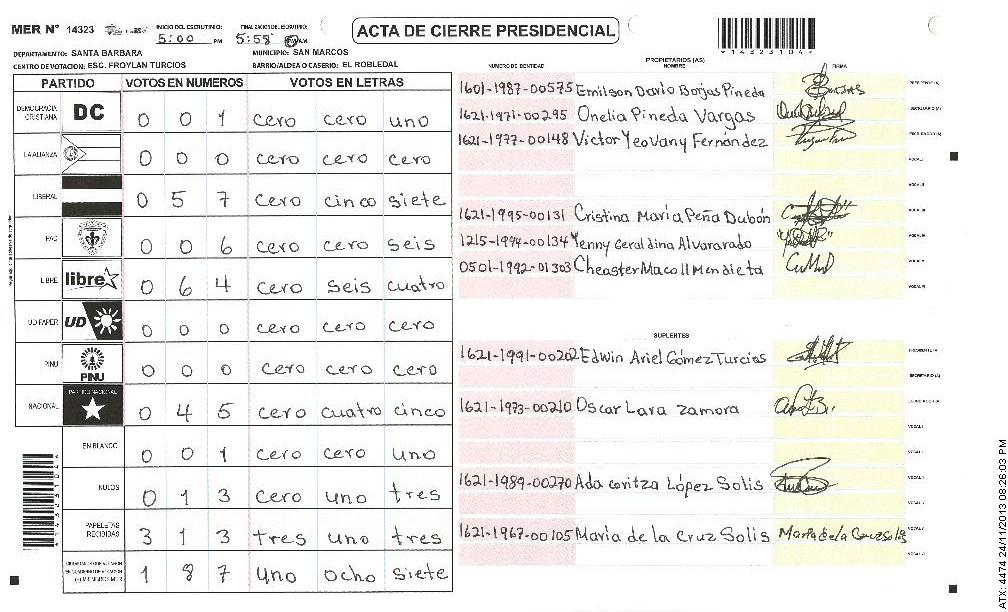 MER Nº 14323 INICIO DEL ESCRUTINIO: 5:00 PM FINALIZACION DEL ESCRUTINIO: 5:58 AM
ACTA DE CIERRE PRESIDENCIAL
*14323104*
DEPARTAMENTO: SANTA BARBARA MUNICIPIO: SAN MARCOS
CENTRO DE VOTACION: ESC. FROYLAN TURCIOS BARRIO/ALDEA O CASERIO: EL ROBLEDAL
PARTIDO VOTOS EN NUMEROS VOTOS EN LETRAS
DEMOCRACIA CRISTIANA DC 0 0 1 cero cero uno
LA ALIANZA 0 0 0 cero cero cero
LIBERAL 0 5 7 cero cinco siete
PAC 0 0 6 cero cero seis
LIBRE libre 0 6 4 cero seis cuatro
UD-FAPER UD 0 0 0 cero cero cero
PINU PINU 0 0 0 cero cero cero
NACIONAL PARTIDO NACIONAL 0 4 5 cero cuatro cinco
EN BLANCO 0 0 1 cero cero uno
NULOS 0 1 3 cero uno tres
PAPELETAS RECIBIDAS 3 1 3 tres uno tres
1 8 7 uno ocho siete
PROPIETARIOS (AS)
NUMERO DE IDENTIDAD NOMBRE FIRMA
1601-1987-00575 Emilson Dario Borjas Pineda PRESIDENTE (A)
1621-1971-00295 Onelia Pineda Vargas SECRETARIO (A)
1621-1977-00148 Victor Yeovany Fernández ESCRUTADOR (A)
VOCAL I
VOCAL II
1621-1995-00131 Cristina Maria Peña Dubón VOCAL III
1215-1994-00134 Yenny Geraldina Alvararado VOCAL IV
0501-1992-01303 Cheaster Macoll Mendieta VOCAL V
VOCAL VI
SUPLENTES
1621-1991-00202 Edwin Ariel Gómez Turcios PRESIDENTE (A)
SECRETARIO (A)
1621-1973-00210 Oscar Lara Zamora ESCRUTADOR (A)
VOCAL I
1621-1989-00270 Ada coritza López Solis
1621-1967-00105 Maria de la Cruz Solis Maria de la Cruz solis
ATX: 4474 24/11/2013 08:26:03 PM